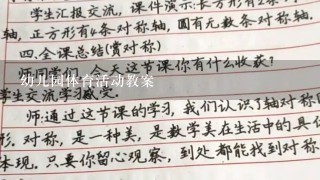 学生汇报交流，课件演示：长方形有2条对称
轴，正方形有4条对称轴，圆有无数条对称轴.
四.全课总结(赏对称)
今天这节课你有什么收获？
幼儿园体育活动教案
学生交流学习
师：通过这节课的学习，我们认识了轴对称图
形.对称，是一种美，是数学美在生活中的具体
体现.只要你留心观察，到处都能找到对称